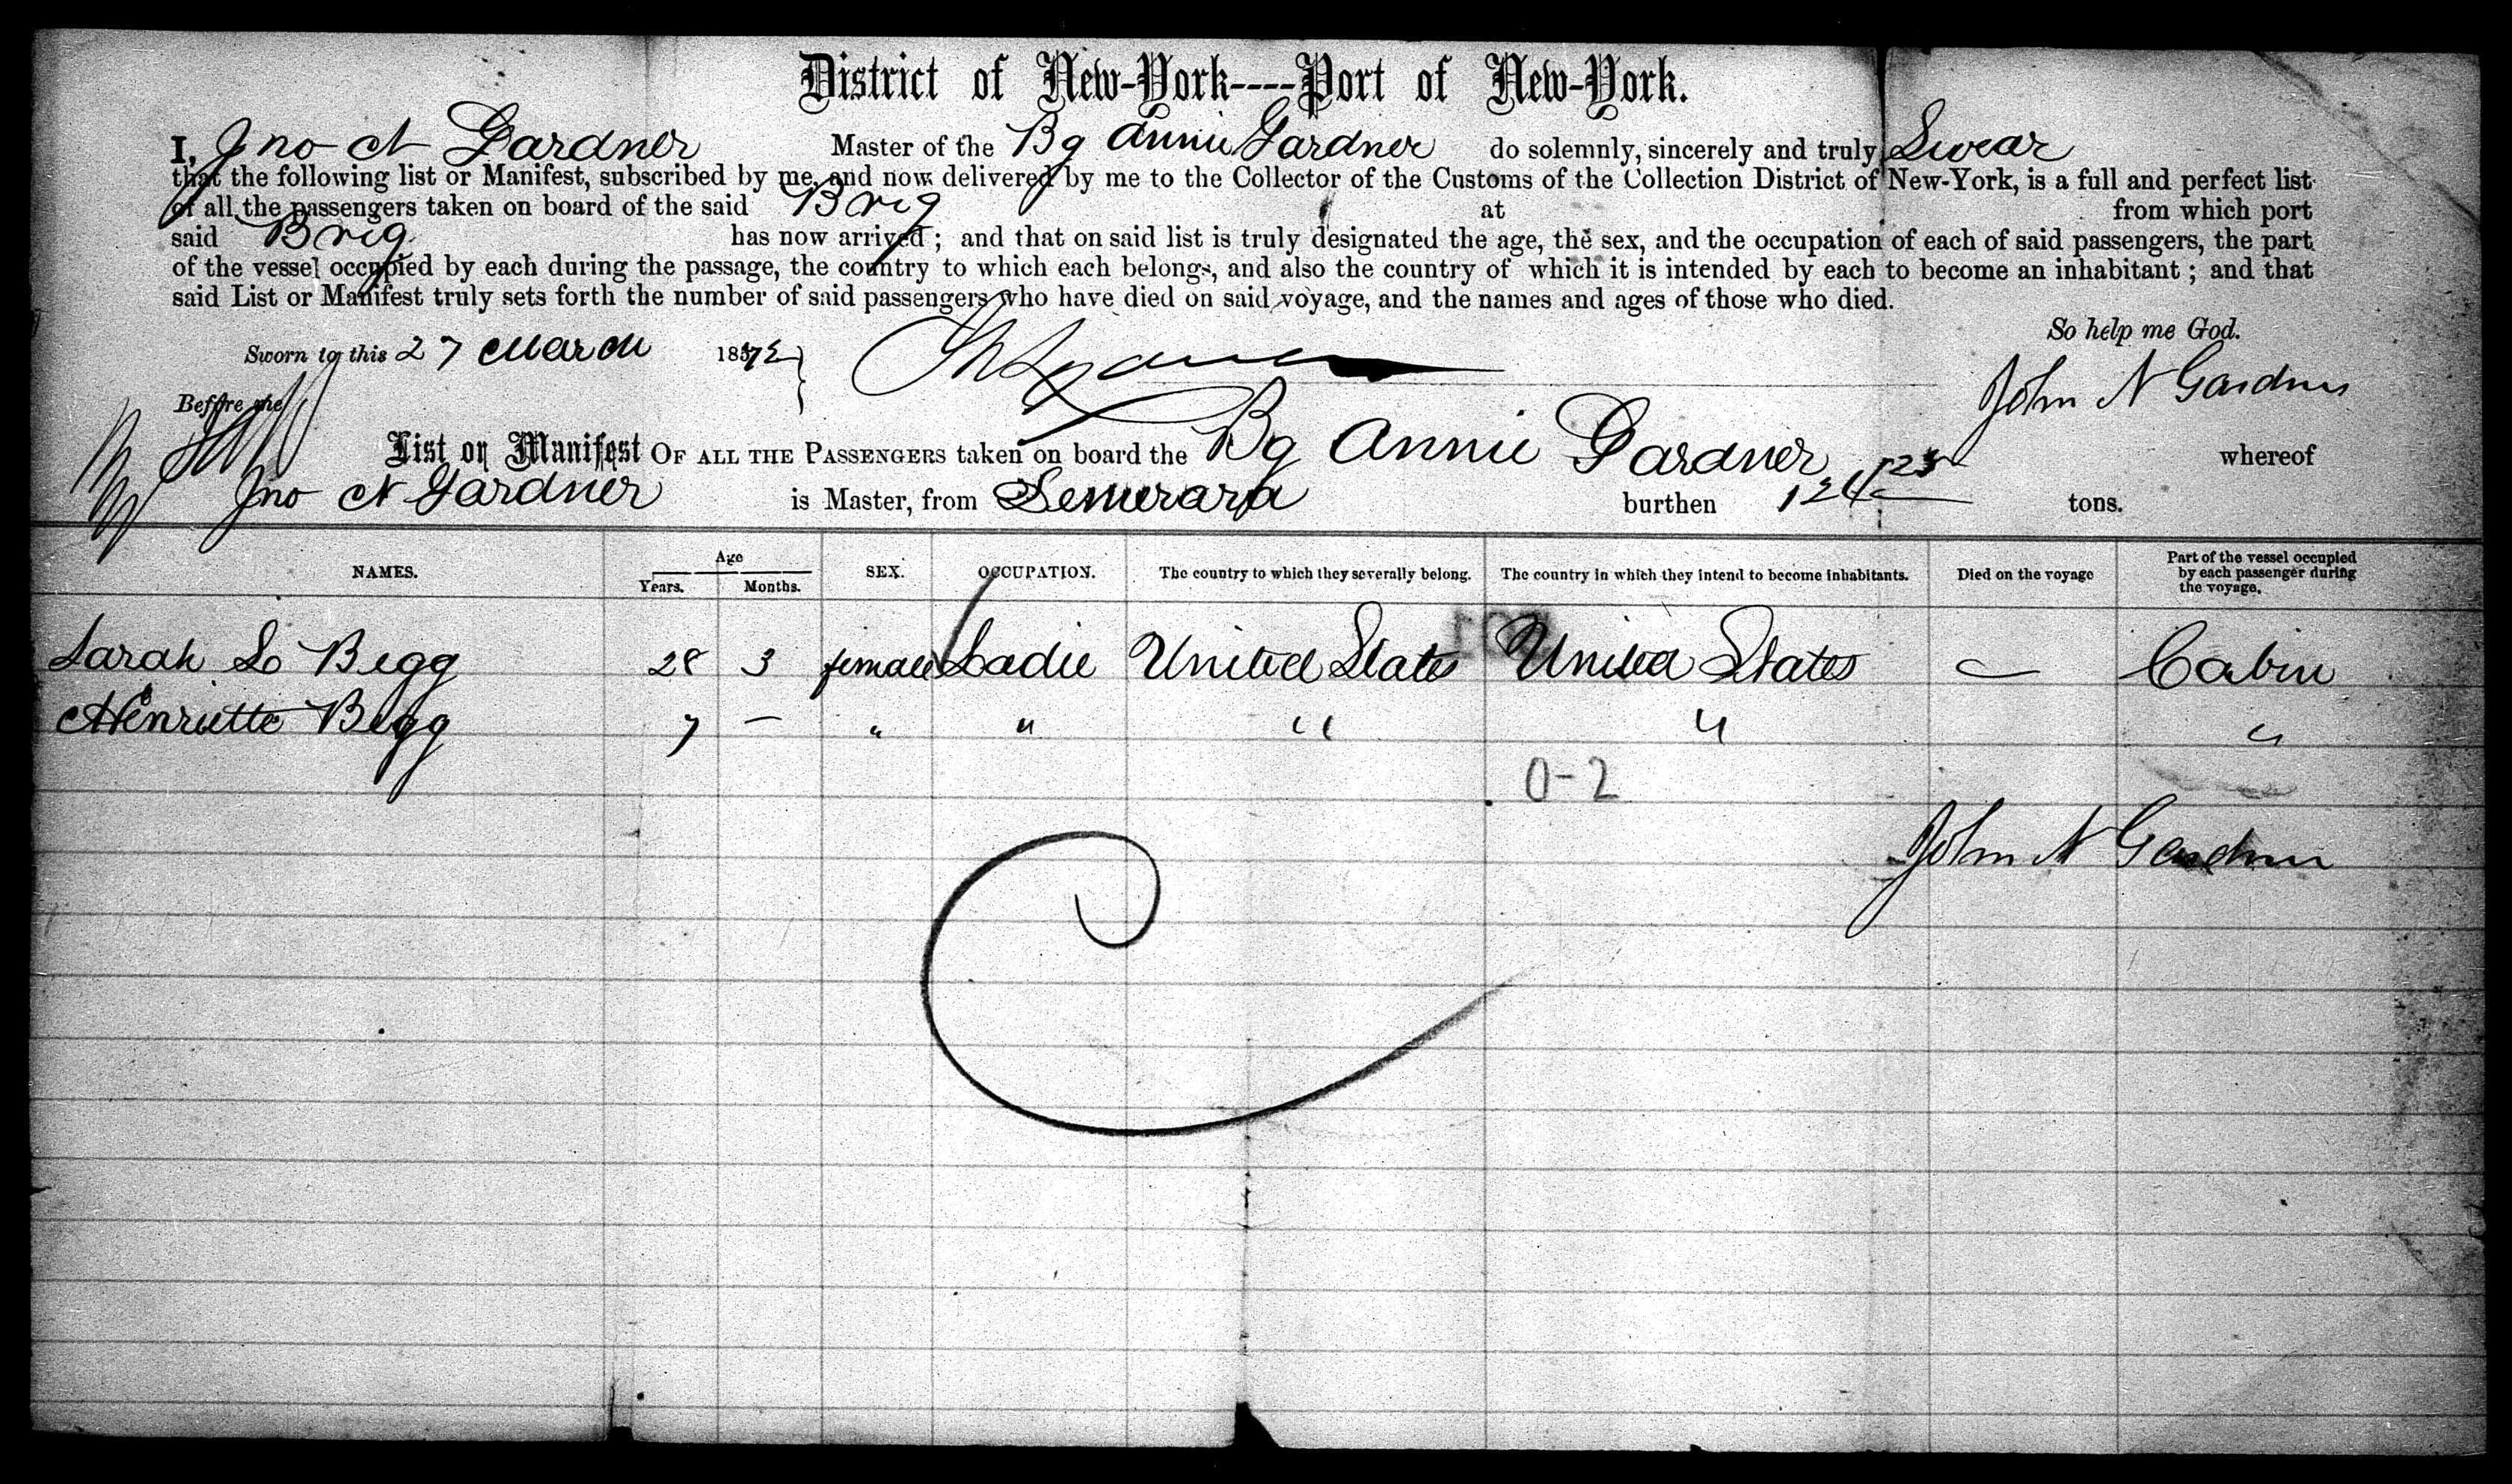 District of New-York----Port of New-York.
I, Jno N Gardner Master of the Bg Annie Gardner do solemnly, sincerely and truly Swear
that the following list or Manifest, subscribed by me, and now delivered by me to the Collector of the Customs of the Collection District of New-York, is a full and perfect list
of all the passengers taken on board of the said Brig at from which port
said Brig has now arrived; and that on said list is truly designated the age, the sex, and the occupation of each of said passengers, the part
of the vessel occupied by each during the passage, the country to which each belongs, and also the country of which it is intended by each to become an inhabitant; and that
said List or Manifest truly sets forth the number of said passengers who have died on said voyage, and the names and ages of those who died.
So help me God.
Sworn to this 27 March 1872
John N Gardner
Before me
List or Manifest OF ALL THE PASSENGERS taken on board the Bg Annie Gardner whereof
Jno N Gardner is Master, from Demerara burthen tons.
NAMES. Age Years. Months. SEX. OCCUPATION. The country to which they severally belong. The country in which they intend to become inhabitants. Died on the voyage Part of the vessel occupied by each passenger during the voyage.
Sarah L Begg 28 3 female Ladie United States United States — Cabin
Henriette Begg 7 — " " " " "
0-2
John N Gardner